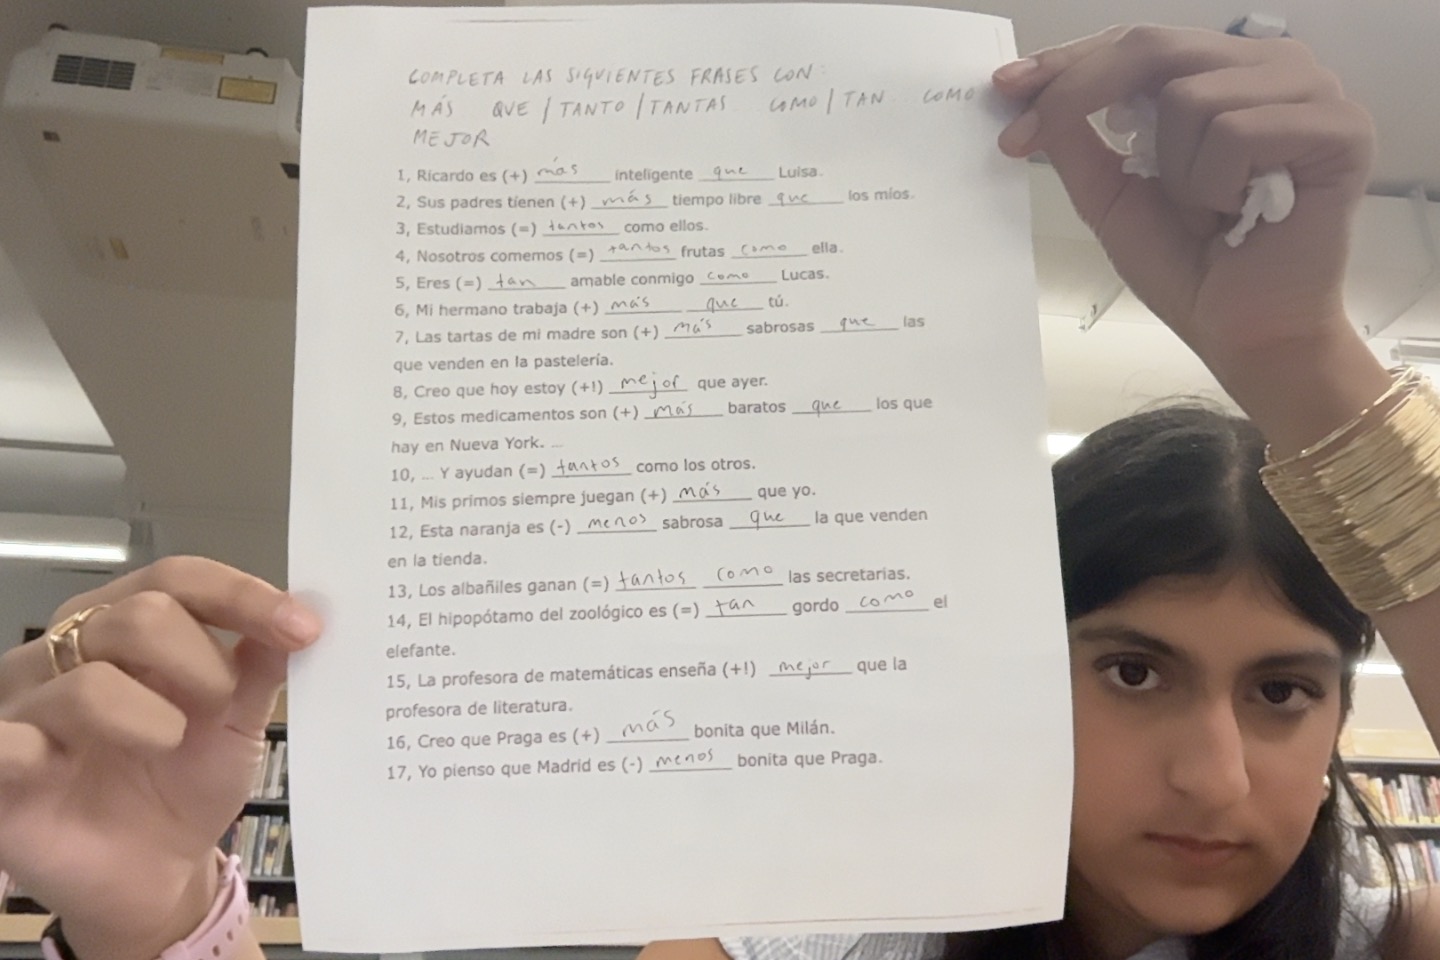 COMPLETA LAS SIGUIENTES FRASES CON:
MÁS QUE / TANTO / TANTAS COMO / TAN COMO
MEJOR
1, Ricardo es (+) más inteligente que Luisa.
2, Sus padres tienen (+) más tiempo libre que los míos.
3, Estudiamos (=) tantos como ellos.
4, Nosotros comemos (=) tantos frutas como ella.
5, Eres (=) tan amable conmigo como Lucas.
6, Mi hermano trabaja (+) más que tú.
7, Las tartas de mi madre son (+) más sabrosas que las
que venden en la pastelería.
8, Creo que hoy estoy (+!) mejor que ayer.
9, Estos medicamentos son (+) más baratos que los que
hay en Nueva York. ...
10, ... Y ayudan (=) tantos como los otros.
11, Mis primos siempre juegan (+) más que yo.
12, Esta naranja es (-) menos sabrosa que la que venden
en la tienda.
13, Los albañiles ganan (=) tantos como las secretarias.
14, El hipopótamo del zoológico es (=) tan gordo como el
elefante.
15, La profesora de matemáticas enseña (+!) mejor que la
profesora de literatura.
16, Creo que Praga es (+) más bonita que Milán.
17, Yo pienso que Madrid es (-) menos bonita que Praga.